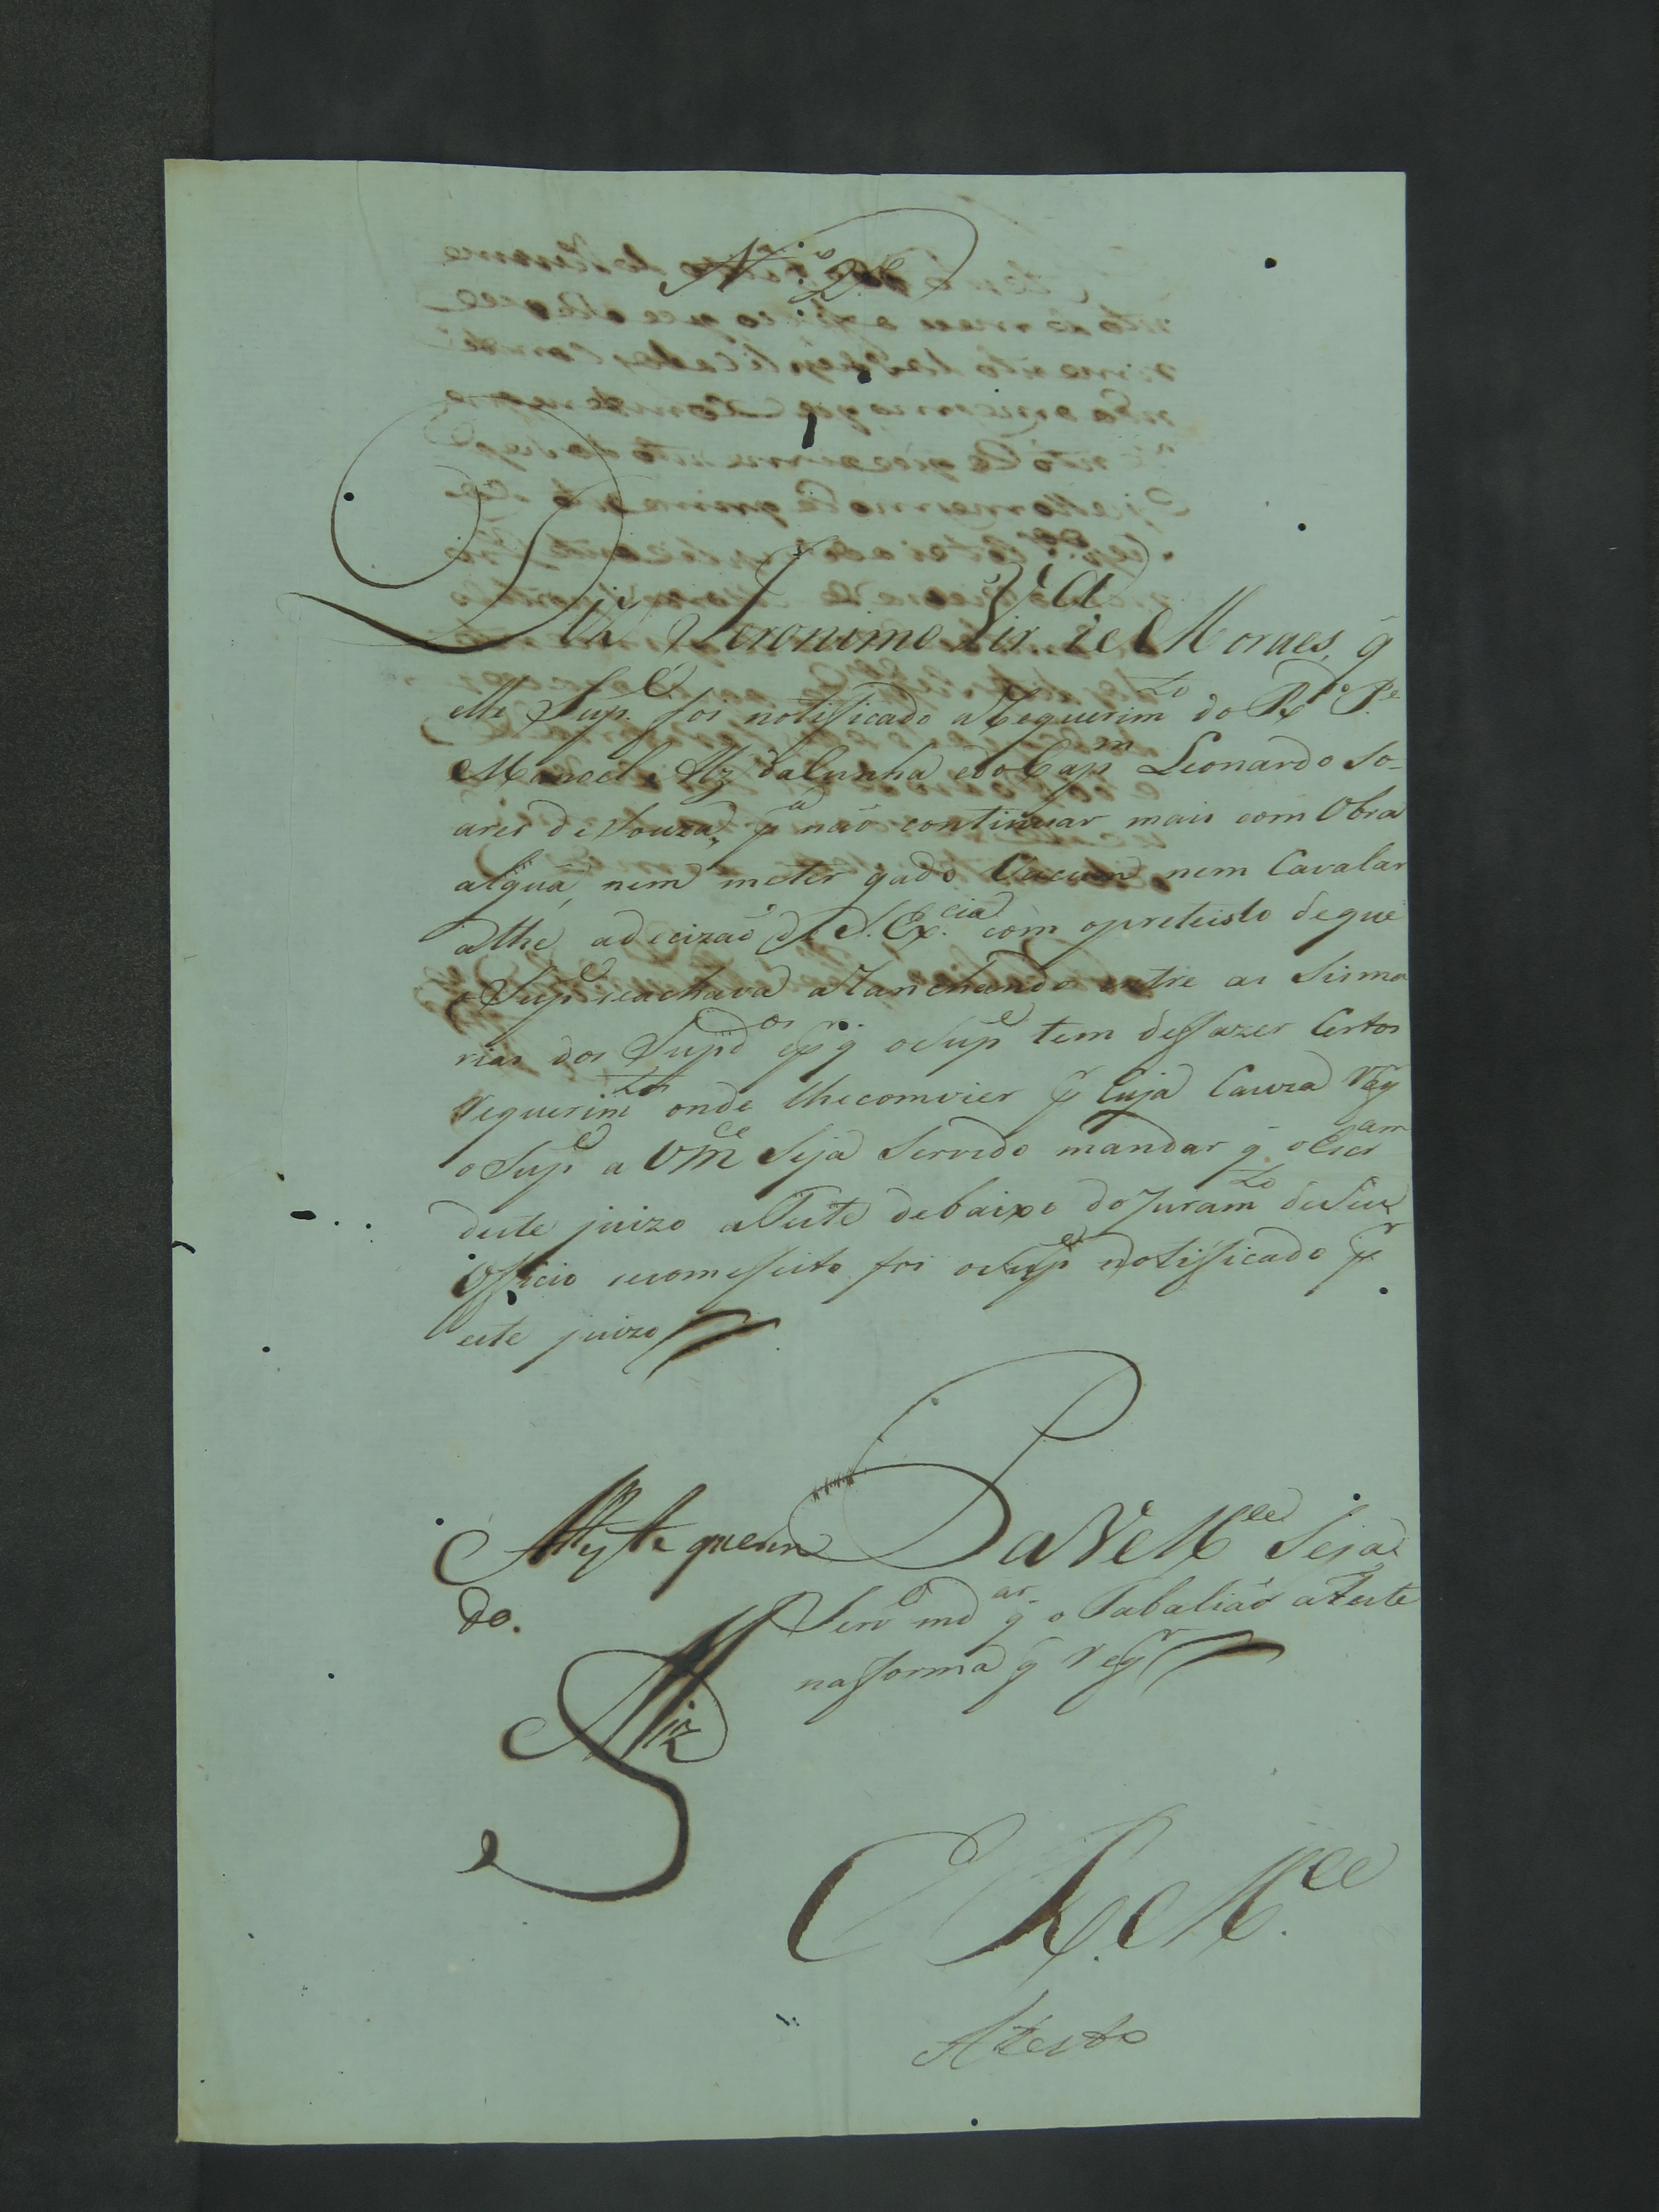 N.º 2º
Diz Jeronimo Xir.ª de Moraes, q̃
elle Sup.e foi notifficado a Requerim.to do R.do P.e
Manoel Alz da Cunha e do Cap.m Leonardo So-
ares de Souza, p.a não continuar mais com Obra
algũa, nem meter gado Vacum nem Cavalar
athe a decizaõ de S. Ex.cia com o preteisto de que
o Sup.e se achava aRanchando entre as Sisma
rias dos Sup.dos e p.r q̃ o Sup.e tem de fazer Certos
requerim.tos onde lhe comvier p.r Cuja Cauza Req.r
o Sup.e a Vm.ce Seja Servido mandar q̃ o Escr.am
deste juizo aTeste debaixo do Juram.to de Seu
Officio secom effeito foi o Sup.e notifficado p.r
este juizo
P a VceM.ce Seja
Serv.o md.ar q̃ o Tabaliaõ aTeste
na forma q̃ req.r
Atteste queren
do.
E R. M.ce
Atesto